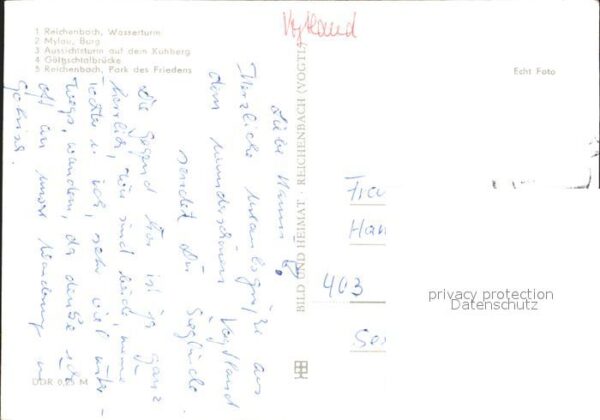 1 Reichenbach, Wasserturm
2 Mylau, Burg
3 Aussichtsturm auf dem Kuhberg
4 Göltzschtalbrücke
5 Reichenbach, Park des Friedens
Vogtland
Echt Foto
Liebe
Herzliche Urlaubsgrüße aus
dem wunderschönen Vogtland
sendet Dir
Die Gegend hier ist ja ganz
herrlich, wir sind beide, meine
Tochter u. ich, sehr viel unter-
wegs, wandern, da denke ich
oft an unsere Wanderung
DDR 0,25 M
BILD UND HEIMAT · REICHENBACH (VOGTL)
Frau
Han
403
privacy protection
Datenschutz